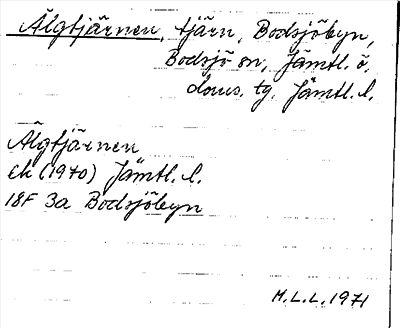 Älgtjärnen, tjärn, Bodsjöbyn,
Bodsjö sn, Jämtl. ö.
doms. tg. Jämtl. l.
Älgtjärnen
Ek (1940) Jämtl. l.
18F 3a Bodsjöbyn
M.L.L. 1971